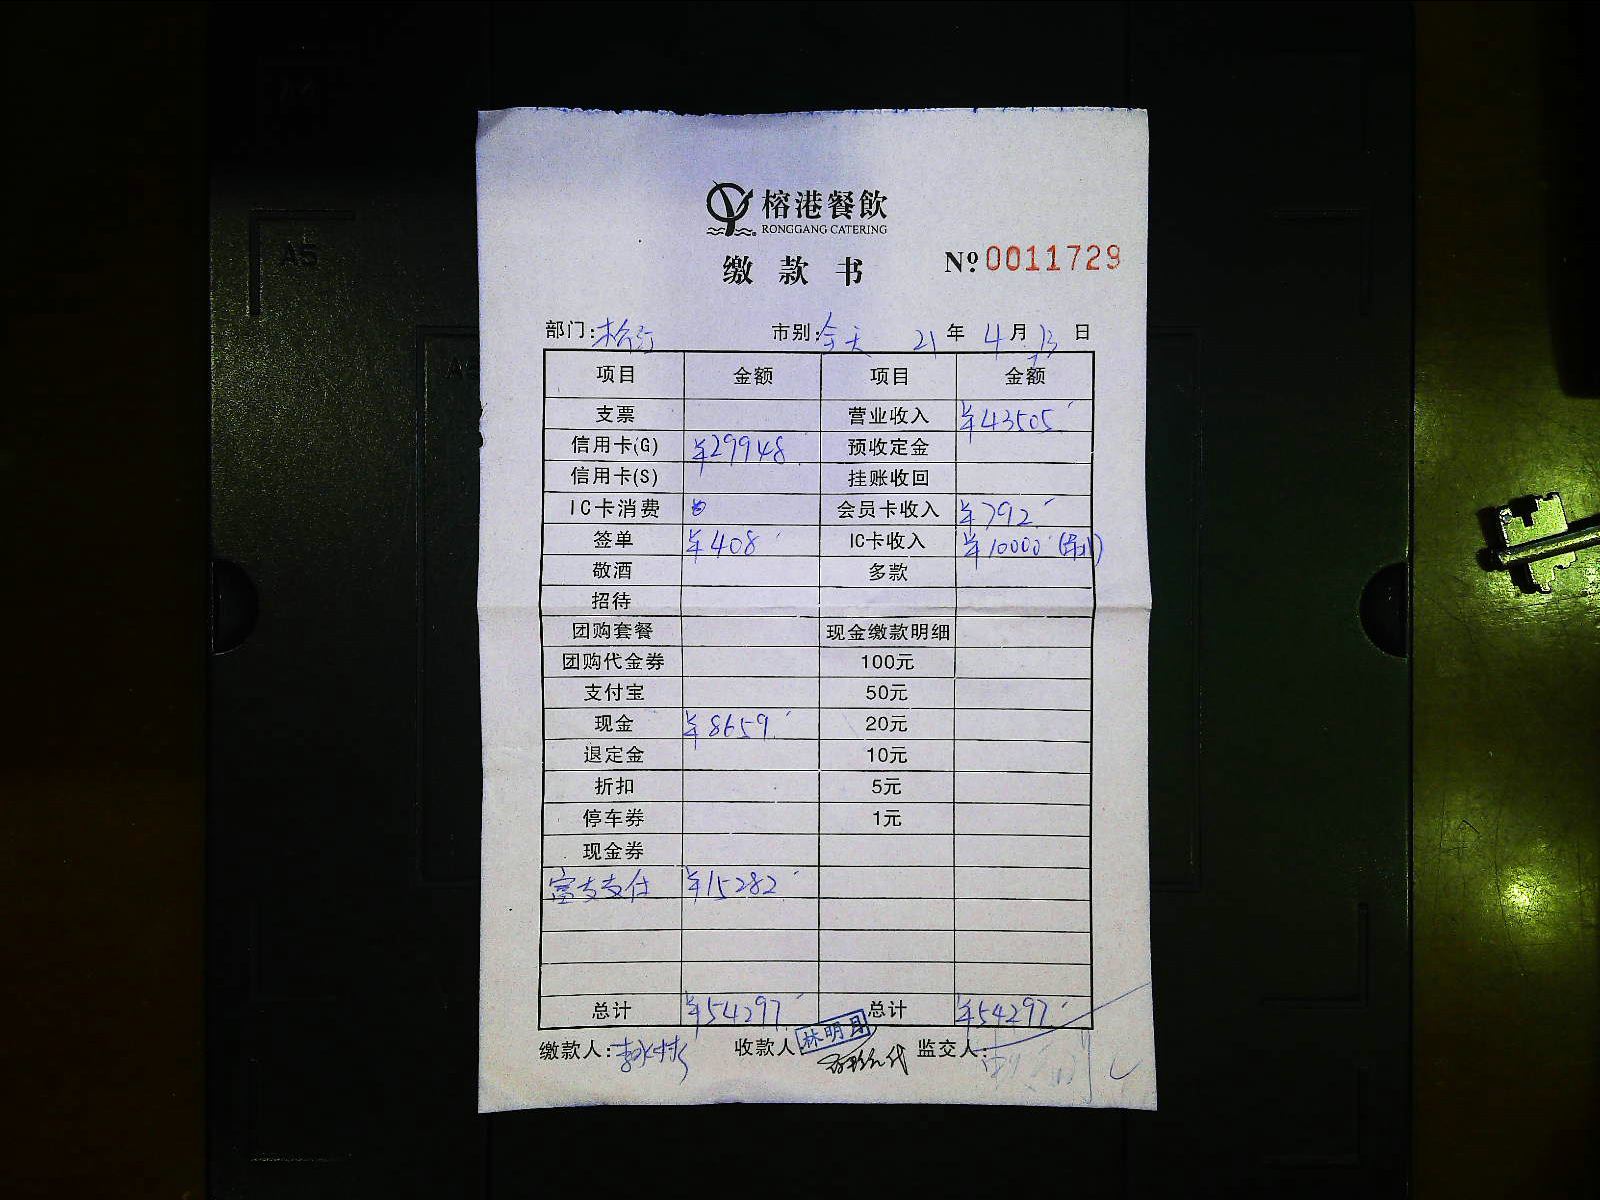 榕港餐飲
RONGGANG CATERING
缴款书 Nº 0011729
部门: 市别:今天 21年4月13日
项目 金额 项目 金额
支票 营业收入 ¥43505
信用卡(G) ¥29948 预收定金
信用卡(S) 挂账收回
IC卡消费 会员卡收入 ¥792
签单 ¥408 IC卡收入 ¥10000
敬酒 多款
招待
团购套餐 现金缴款明细
团购代金券 100元
支付宝 50元
现金 ¥8659 20元
退定金 10元
折扣 5元
停车券 1元
现金券
富友支付 ¥15282
总计 ¥54297 总计 ¥54297
缴款人: 收款人 林明月 监交人:
A5